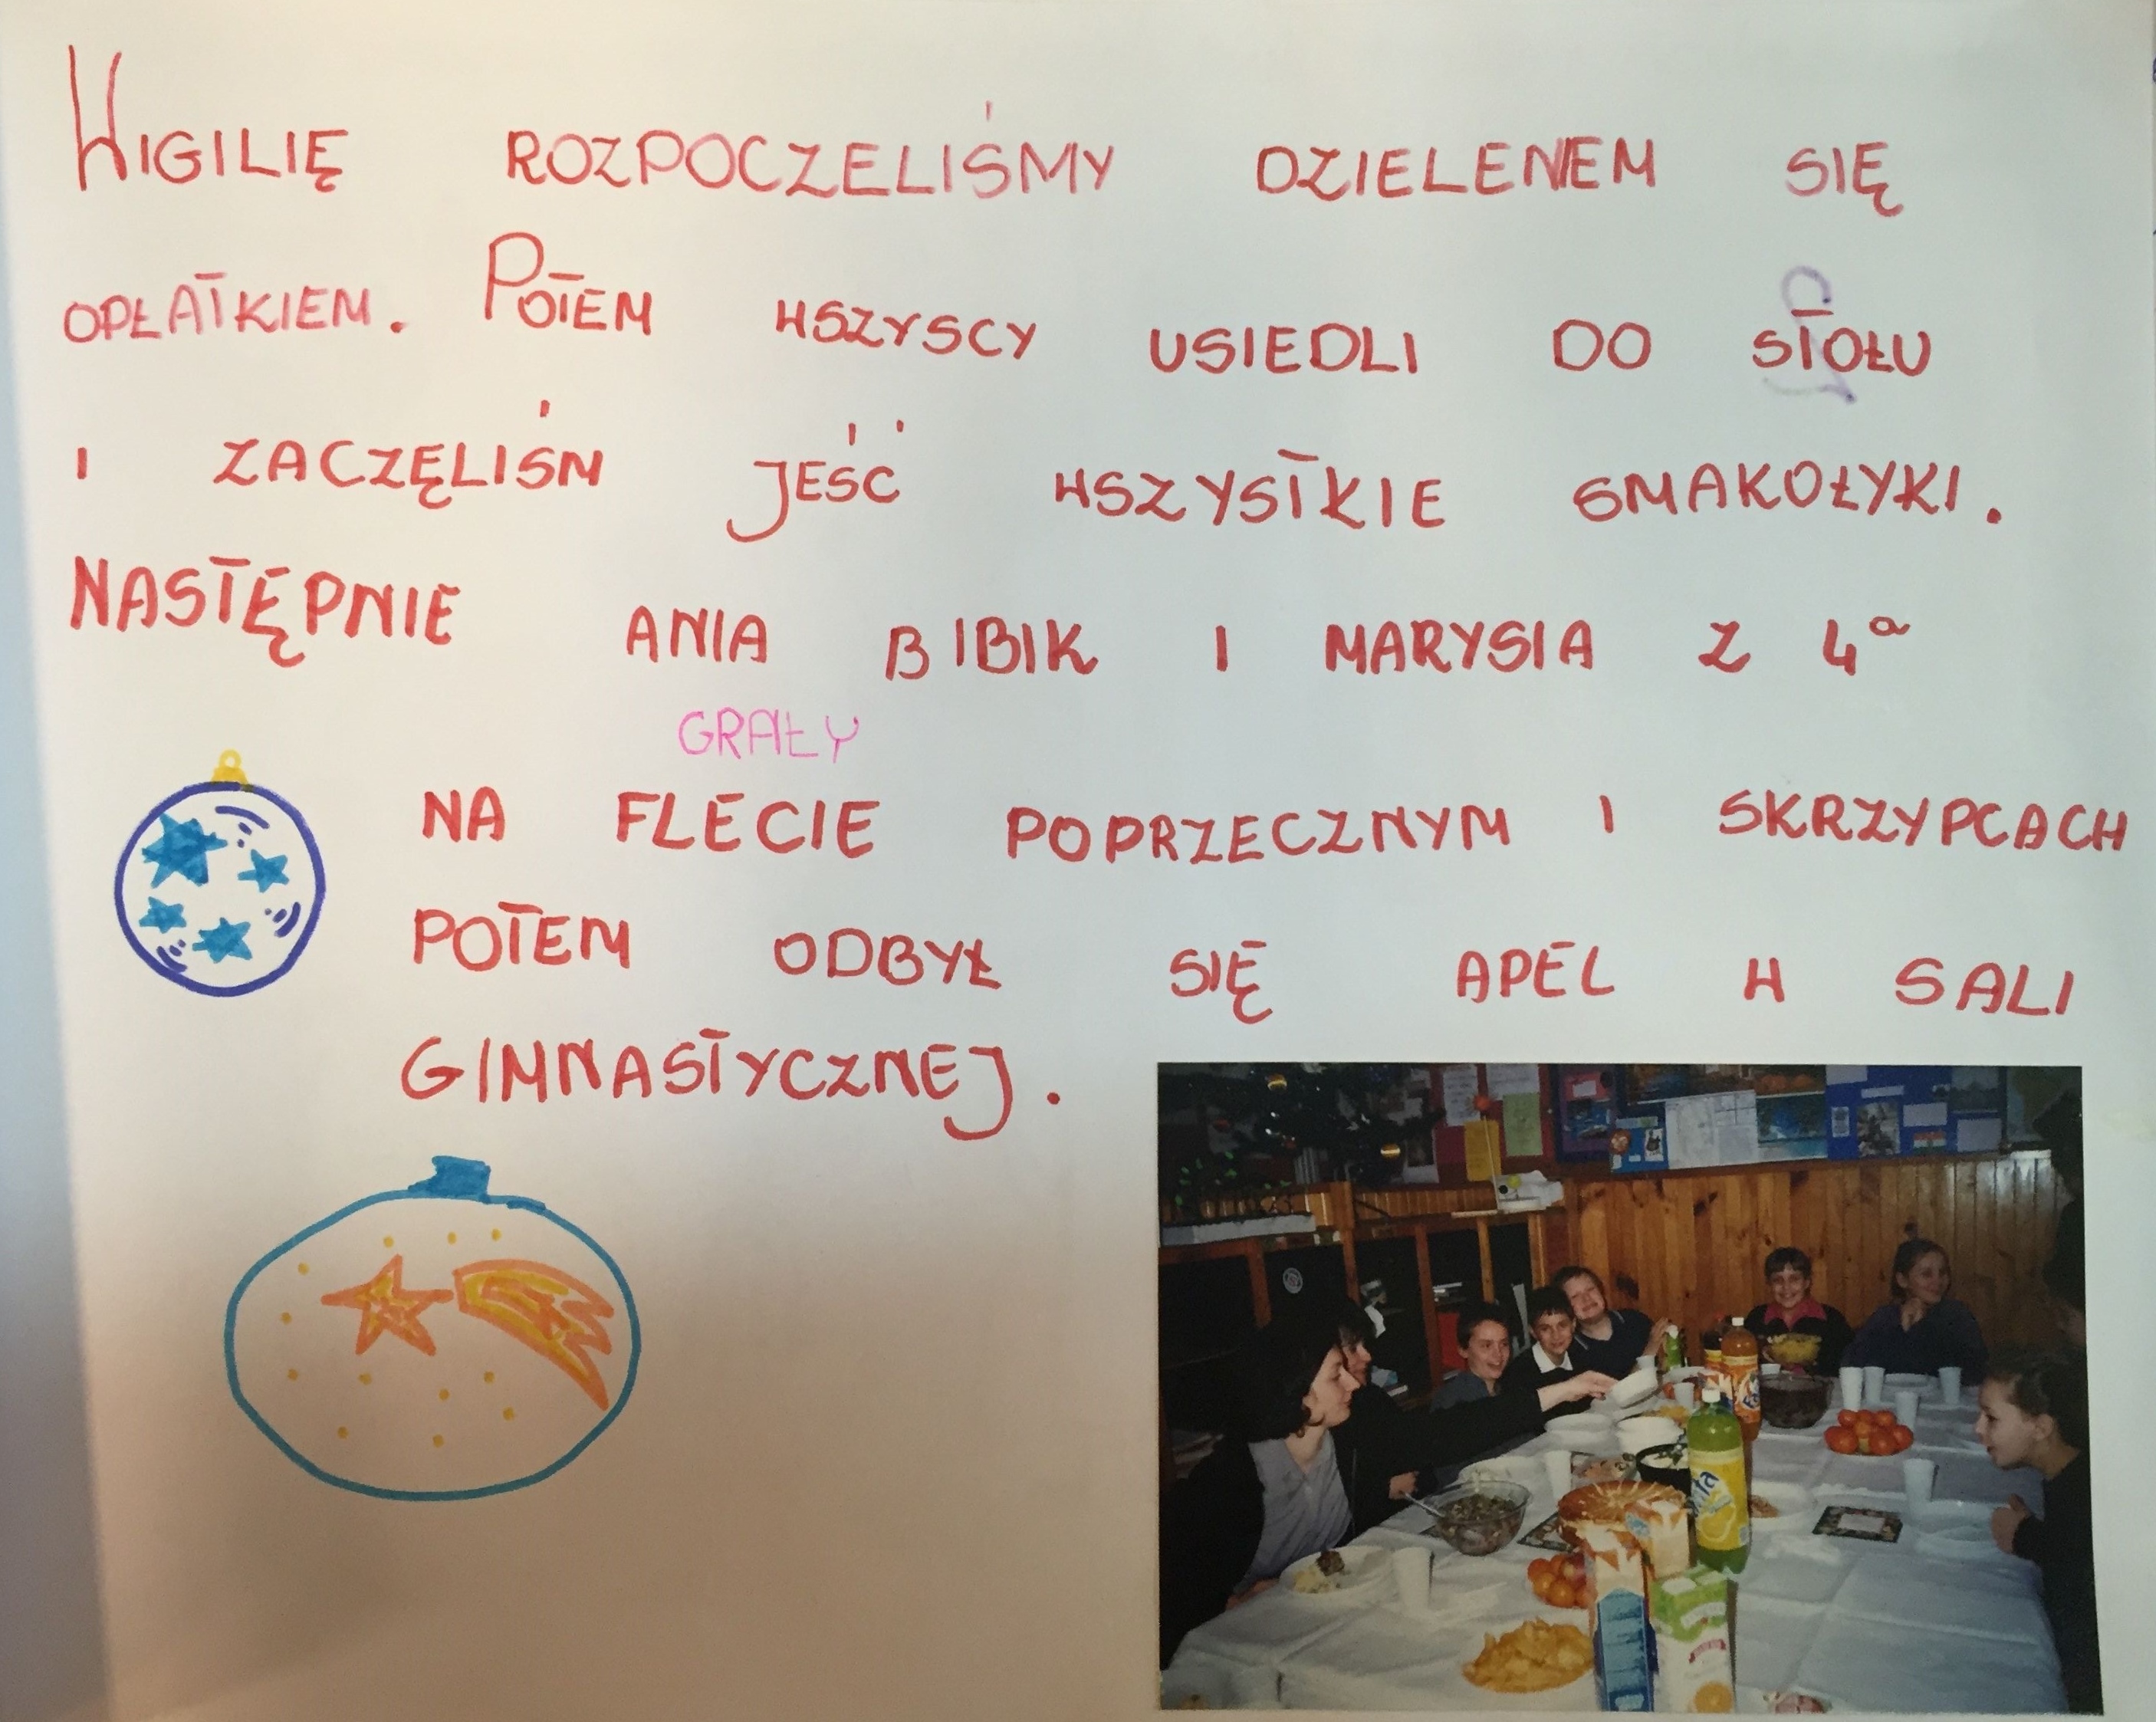 WIGILIĘ ROZPOCZELIŚMY DZIELENIEM SIĘ
OPŁATKIEM. POTEM WSZYSCY USIEDLI DO STOŁU
I ZACZĘLIŚM JEŚĆ WSZYSTKIE SMAKOŁYKI.
NASTĘPNIE ANIA BIBIK I MARYSIA Z 4a
GRAŁY
NA FLECIE POPRZECZNYM I SKRZYPCACH
POTEM ODBYŁ SIĘ APEL W SALI
GIMNASTYCZNEJ.